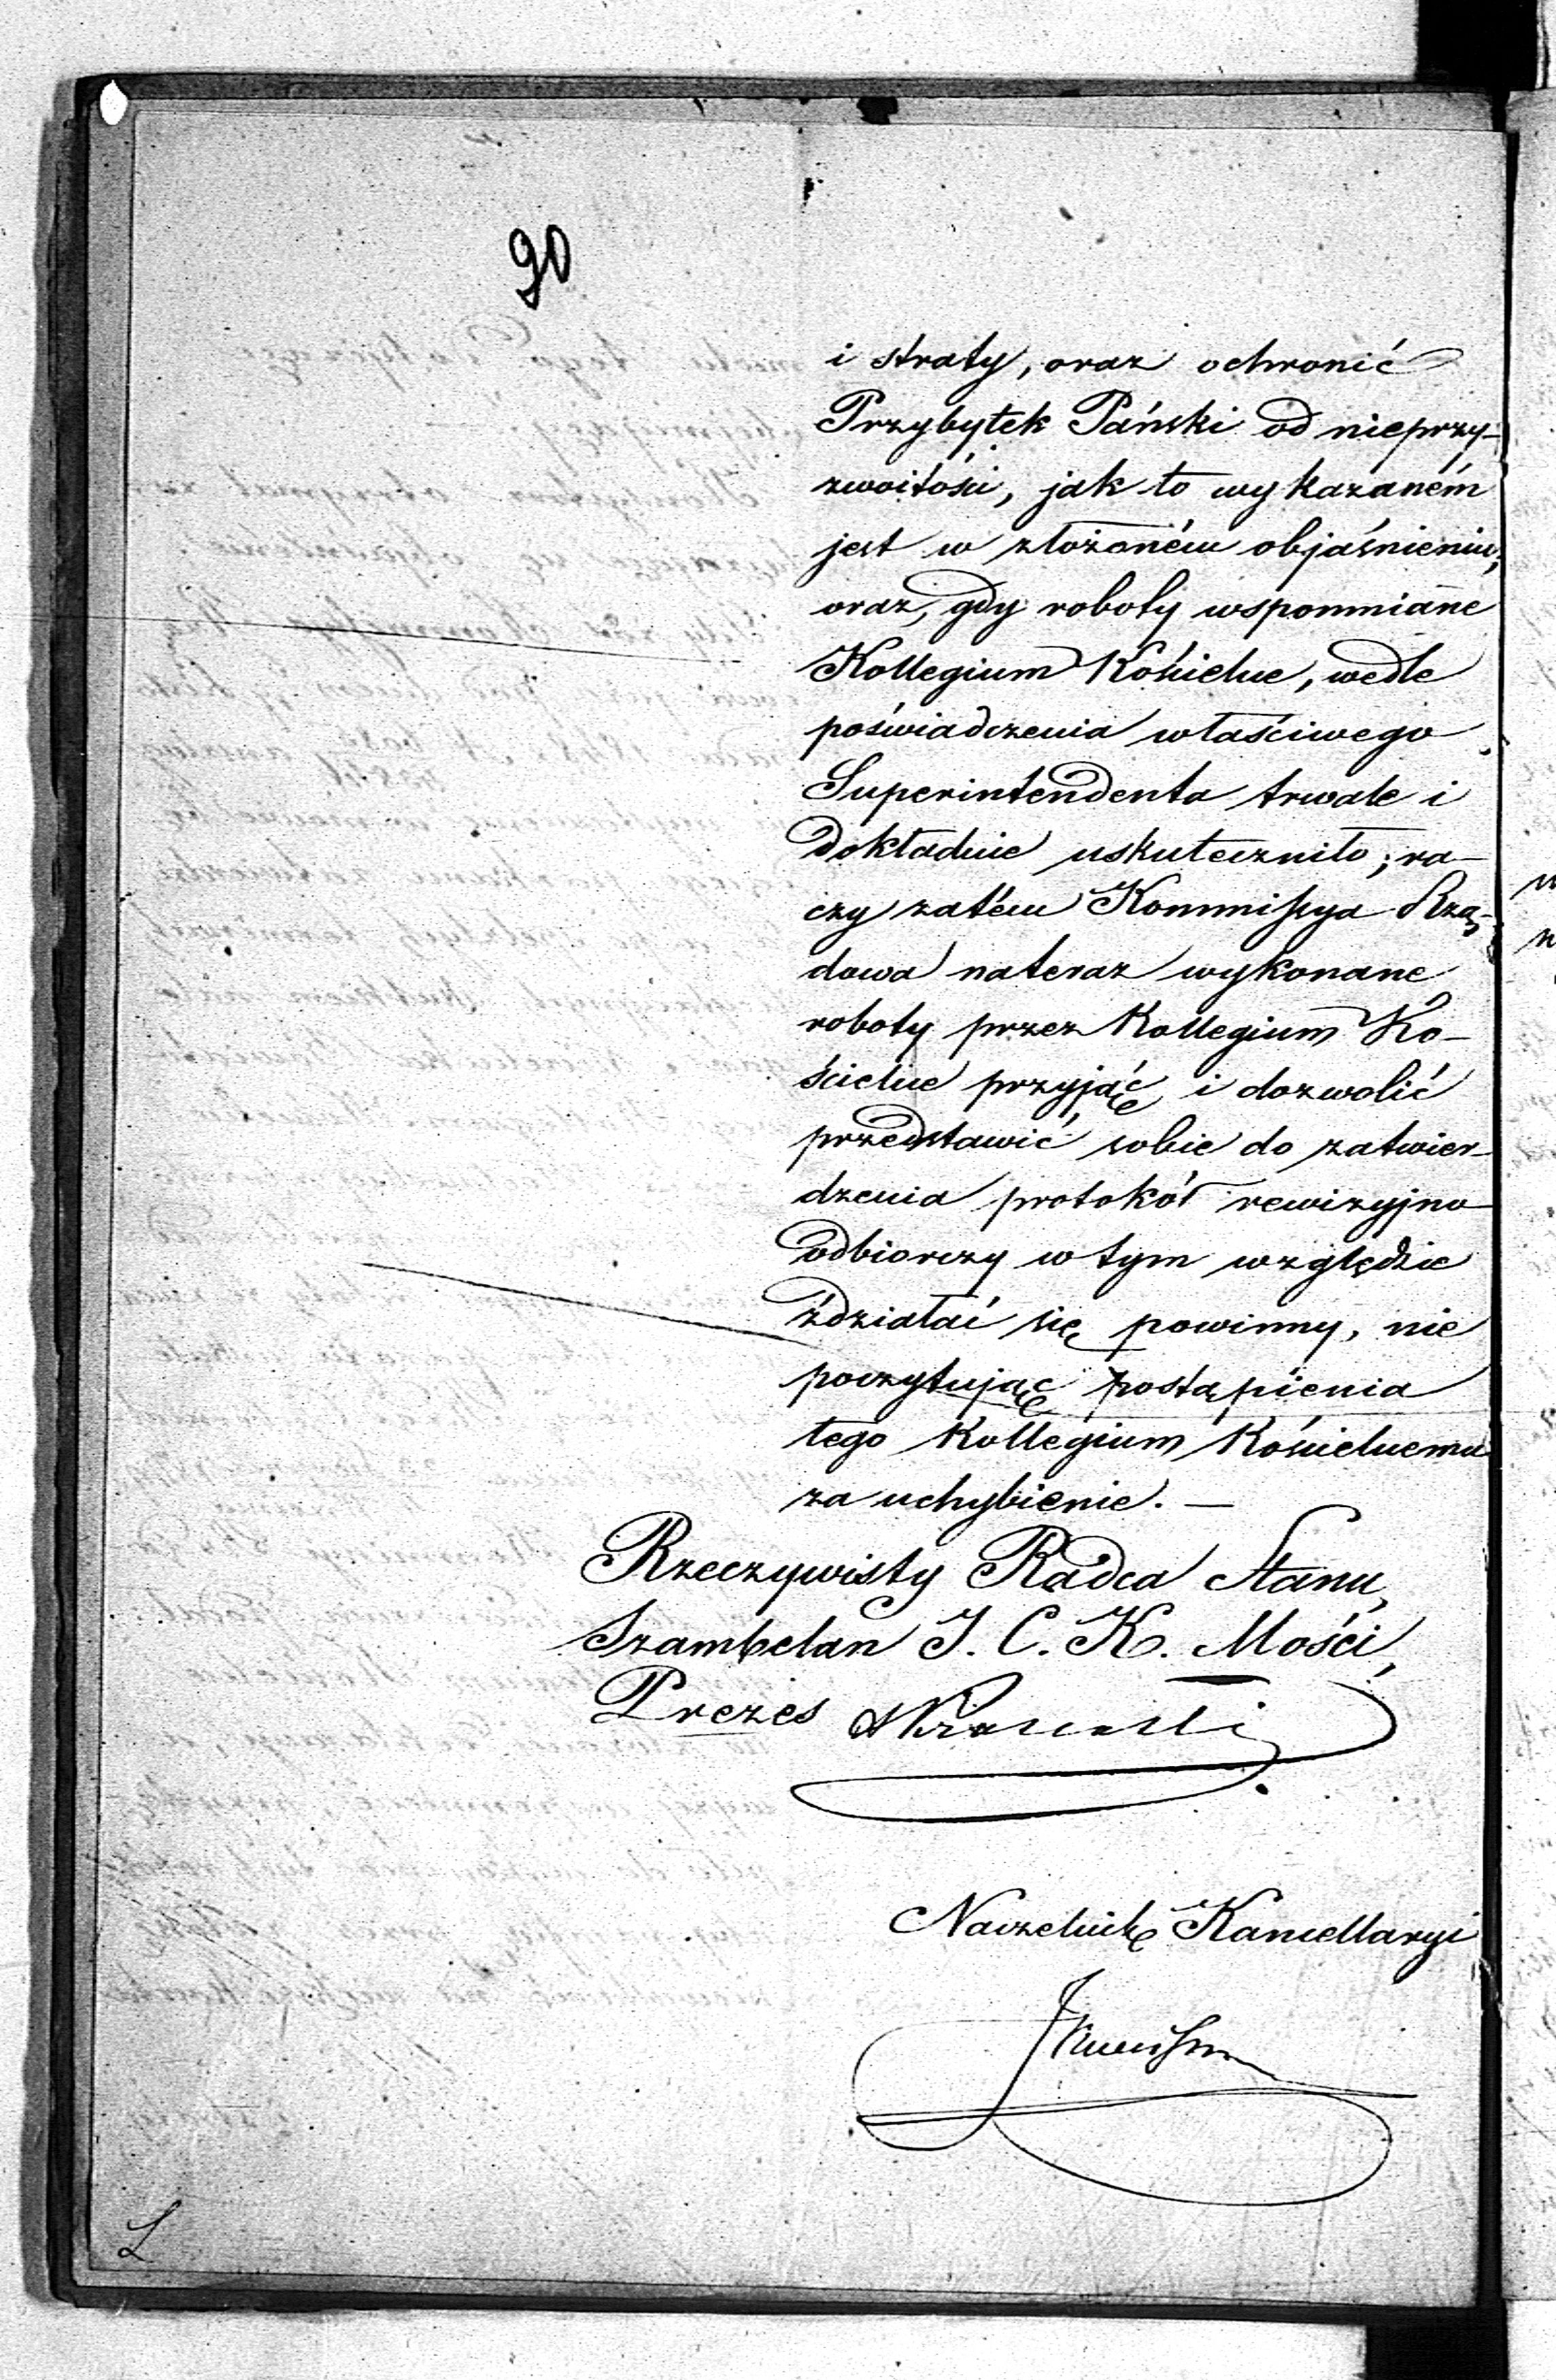 90
i straty, oraz ochronić
Przybytek Pański od nieprzy-
zwoitości, jak to wykazaném
jest w złożoném objaśnieniu;
oraz, gdy roboty wspomniane
Kollegium Kościelne, wedle
poświadczenia właściwego
Superintendenta trwale i
dokładnie uskuteczniło; ra-
czy zatém Kommissya Rzą-
dowa nateraz wykonane
roboty przez Kollegium Ko-
ścielne przyjąć i dozwolić
przedstawić sobie do zatwier-
dzenia protokół rewizyjno
odbiorczy w tym względzie
zdziałać się powinny, nie
poczytując postąpienia
tego Kollegium Kościelnemu
za uchybienie. —
Rzeczywisty Radca Stanu,
Szambelan J. C. K. Mości,
Prezes
Naczelnik Kancellaryi
L